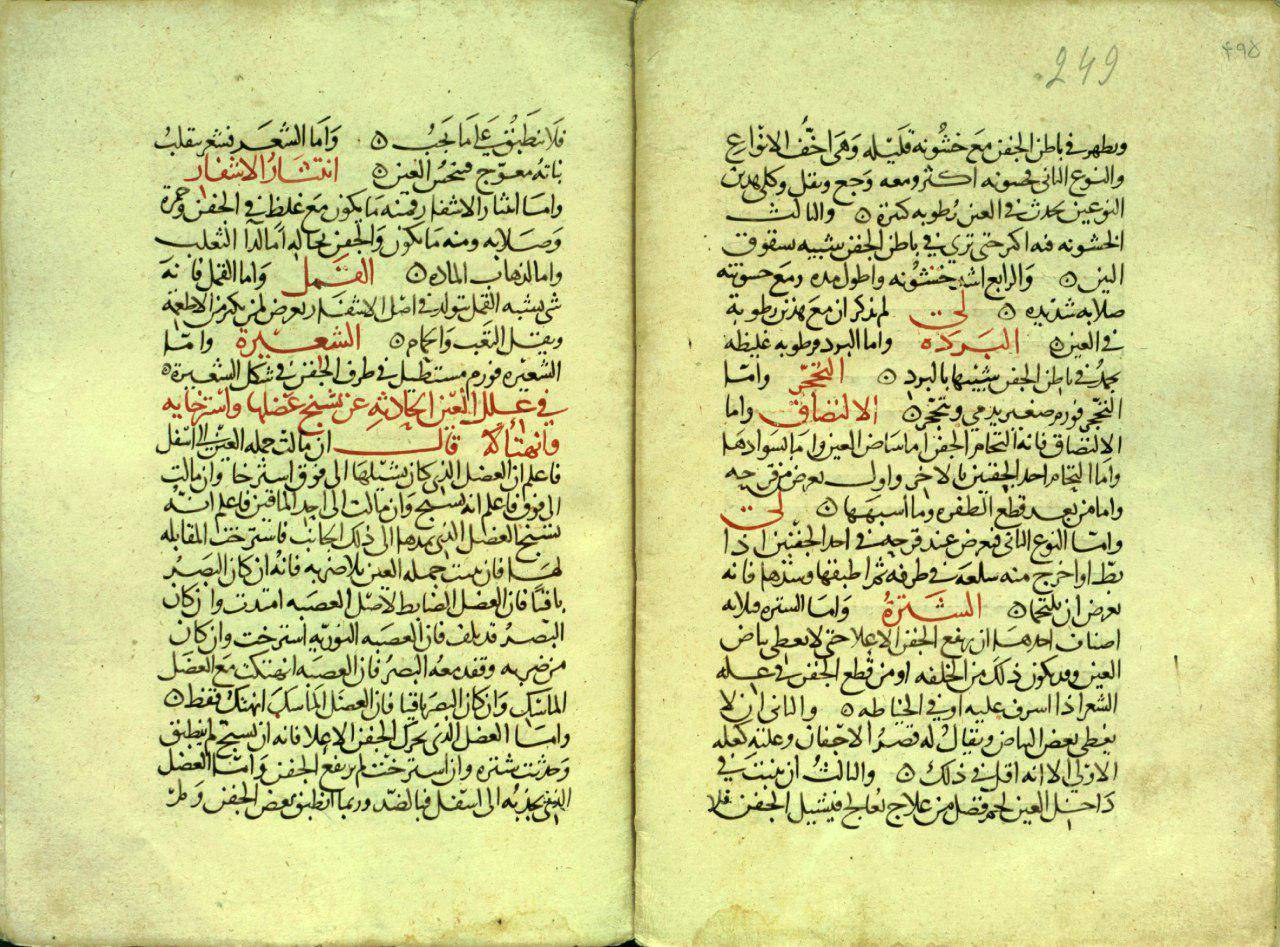 249
۴۹۵
ويظهر في باطن الجفن مع خشونه قليله وهى اخف الانواع
والنوع الثانى خشونه اكثر ومعه وجع وثقل وكلى هذين
النوعين يحدث في العين رطوبه كثيرة ٥ والثالث
الخشونه فيه اكثر حتى ترى في باطن الجفن شبيه بشقوق
التين ٥ والرابع اشد خشونه واطول مده ومع خشونته
صلابه شديده ٥ لى لم يذكر ان مع هذين رطوبة
في العين ٥ البردة واما البرد فرطوبه غليظه
يجمد في باطن الجفن شبيها بالبرد ٥ التحجر واما
التحجر فورم صغير يدمي ويتحجر ٥ الالتصاق واما
الالتصاق فانه التحام الجفن اما ببياض العين واما بسوادها
واما التحام احد الجفنين بالاخر والاول يعرض من قرحه
واما من بعد قطع الظفره وما اشبهها ٥ لى
واما النوع الثانى فيعرض عند قرحه في احد الجفنين اذا
بط او اخرج منه سلعه في طرفه ثم اطبقها وشدها فانه
يعرض ان يلتحما ٥ الشترة واما الشتره فثلاثه
اصناف احدها ان يرتفع الجفن الاعلا حتى لا يغطى بياض
العين وقد يكون ذلك من الخلقه او من قطع الجفن في عله
الشعر اذا اسرف عليه او في الخياطه ٥ والثانى ان لا
يغطى بعض البياض ويقال له قصر الاجفان وعلته كعله
الاولى الا انه اقل في ذلك ٥ والثالث ان ينبت في
داخل العين لحم فضل من علاج يعالج فيشيل الجفن فلا
فلا ينطبق على ما يجب ٥ واما الشعر فشعر ينقلب
نباته معوج فينخس العين ٥ انتثار الاشفار
واما انتثار الاشفار فمنه ما يكون مع غلظ في الجفن وحمرة
وصلابه ومنه ما يكون والجفن بحاله اما لداء الثعلب
واما لذهاب الماده ٥ القمل واما القمل فانه
شى يشبه القمل يتولد في اصل الاشفار يعرض لمن يكثر من الاطعمة
ويقلل التعب والحمام ٥ الشعيرة واما
الشعيره فورم مستطيل في طرف الجفن في شكل الشعيرة ٥
في علل العين الحادثه عن تشنج عضلها واسترخايه
وانهتاكه قال ان مالت جمله العين الى اسفل
فاعلم ان العضل الذى كان يشيلها الى فوق استرخا وان مالت
الى فوق فاعلم انه تشنج وان مالت الى احد الماقين فاعلم انه
تشنج العضل الذى يمدها الى ذلك الجانب او استرخت المقابله
لها فان نتت جمله العين بلا ضربه فانه ان كان البصر
باقيا فان العضل الضابط لاصل العصبه امتدت وان كان
البصر قد تلف فان العصبه النوريه استرخت وان كان
من ضربه وفقد معه البصر فان العصبه انهتكت مع العضل
الماسك وان كان البصر باقيا فان العضل الماسك انهتك فقط ٥
واما العضل الذى يحرك الجفن الاعلا فانه ان تشنج لم ينطبق
وحدثت شتره وان استرخت لم يرتفع الجفن واما العضل
الذى يجذبه الى اسفل فبالضد وربما انطبق بعض الجفن